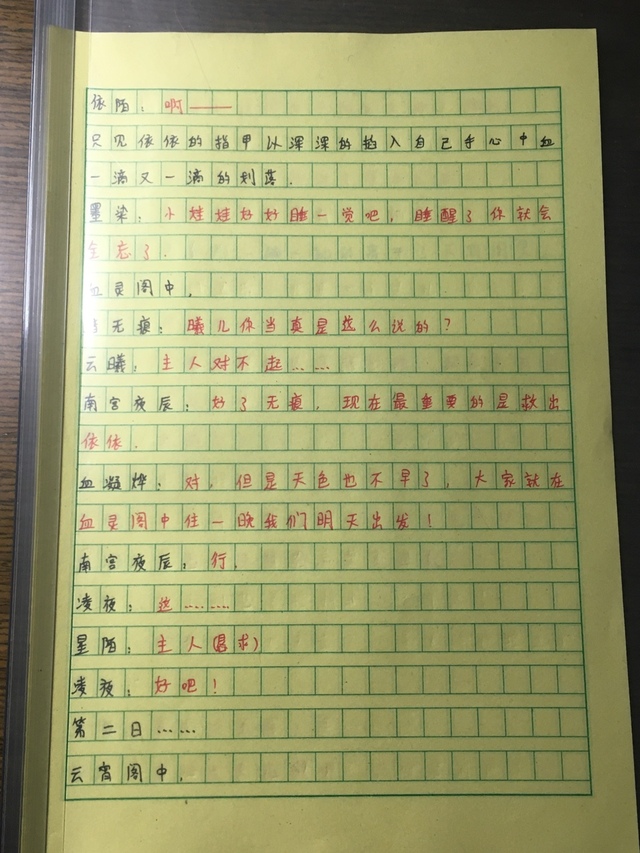 依陌：啊——
只见依依的指甲以深深的掐入自己手心中血
一滴又一滴的划落.
墨染：小娃娃好好睡一觉吧，睡醒了你就会
全忘了.
血灵阁中,
无痕：曦儿你当真是这么说的？
云曦：主人对不起……
南宫夜辰：好了无痕，现在最重要的是救出
依依.
血凝烨：对，但是天色也不早了，大家就在
血灵阁中住一晚我们明天出发！
南宫夜辰：行,
凌夜：这………
星陌：主人(恳求)
凌夜：好吧！
第二日……
云宵阁中.